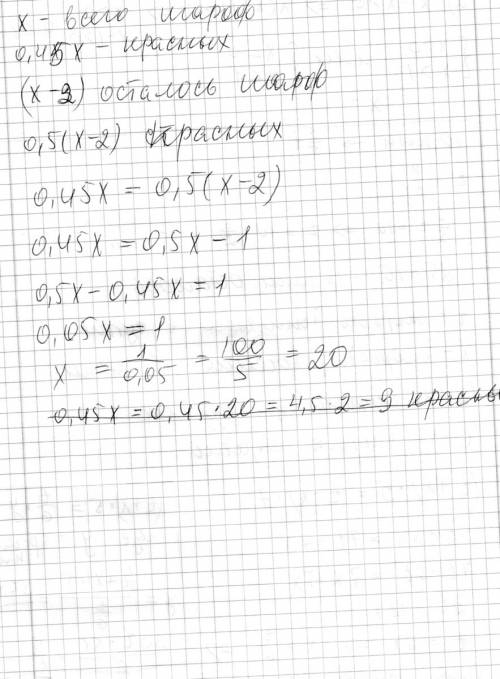 x - всего шаров
0,45x - красных
(x-2) осталось шаров
0,5(x-2) красных
0,45x = 0,5(x-2)
0,45x = 0,5x - 1
0,5x - 0,45x = 1
0,05x = 1
x = 1/0,05 = 100/5 = 20
0,45x = 0,45·20 = 4,5·2 = 9 красны